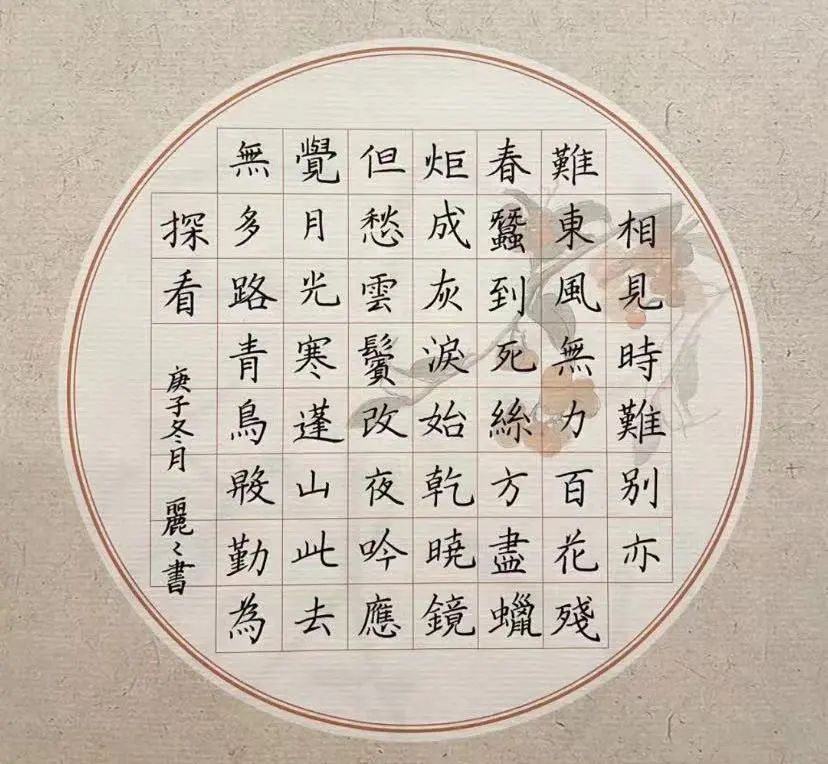 相見時難別亦
難東風無力百花殘
春蠶到死絲方盡蠟
炬成灰淚始乾曉鏡
但愁雲鬢改夜吟應
覺月光寒蓬山此去
無多路青鳥殷勤為
探看
庚子冬月 麗〻書